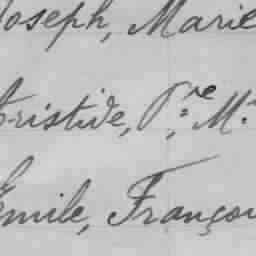 Joseph, Marie
Aristide, P.re M.
Emile, Françoi